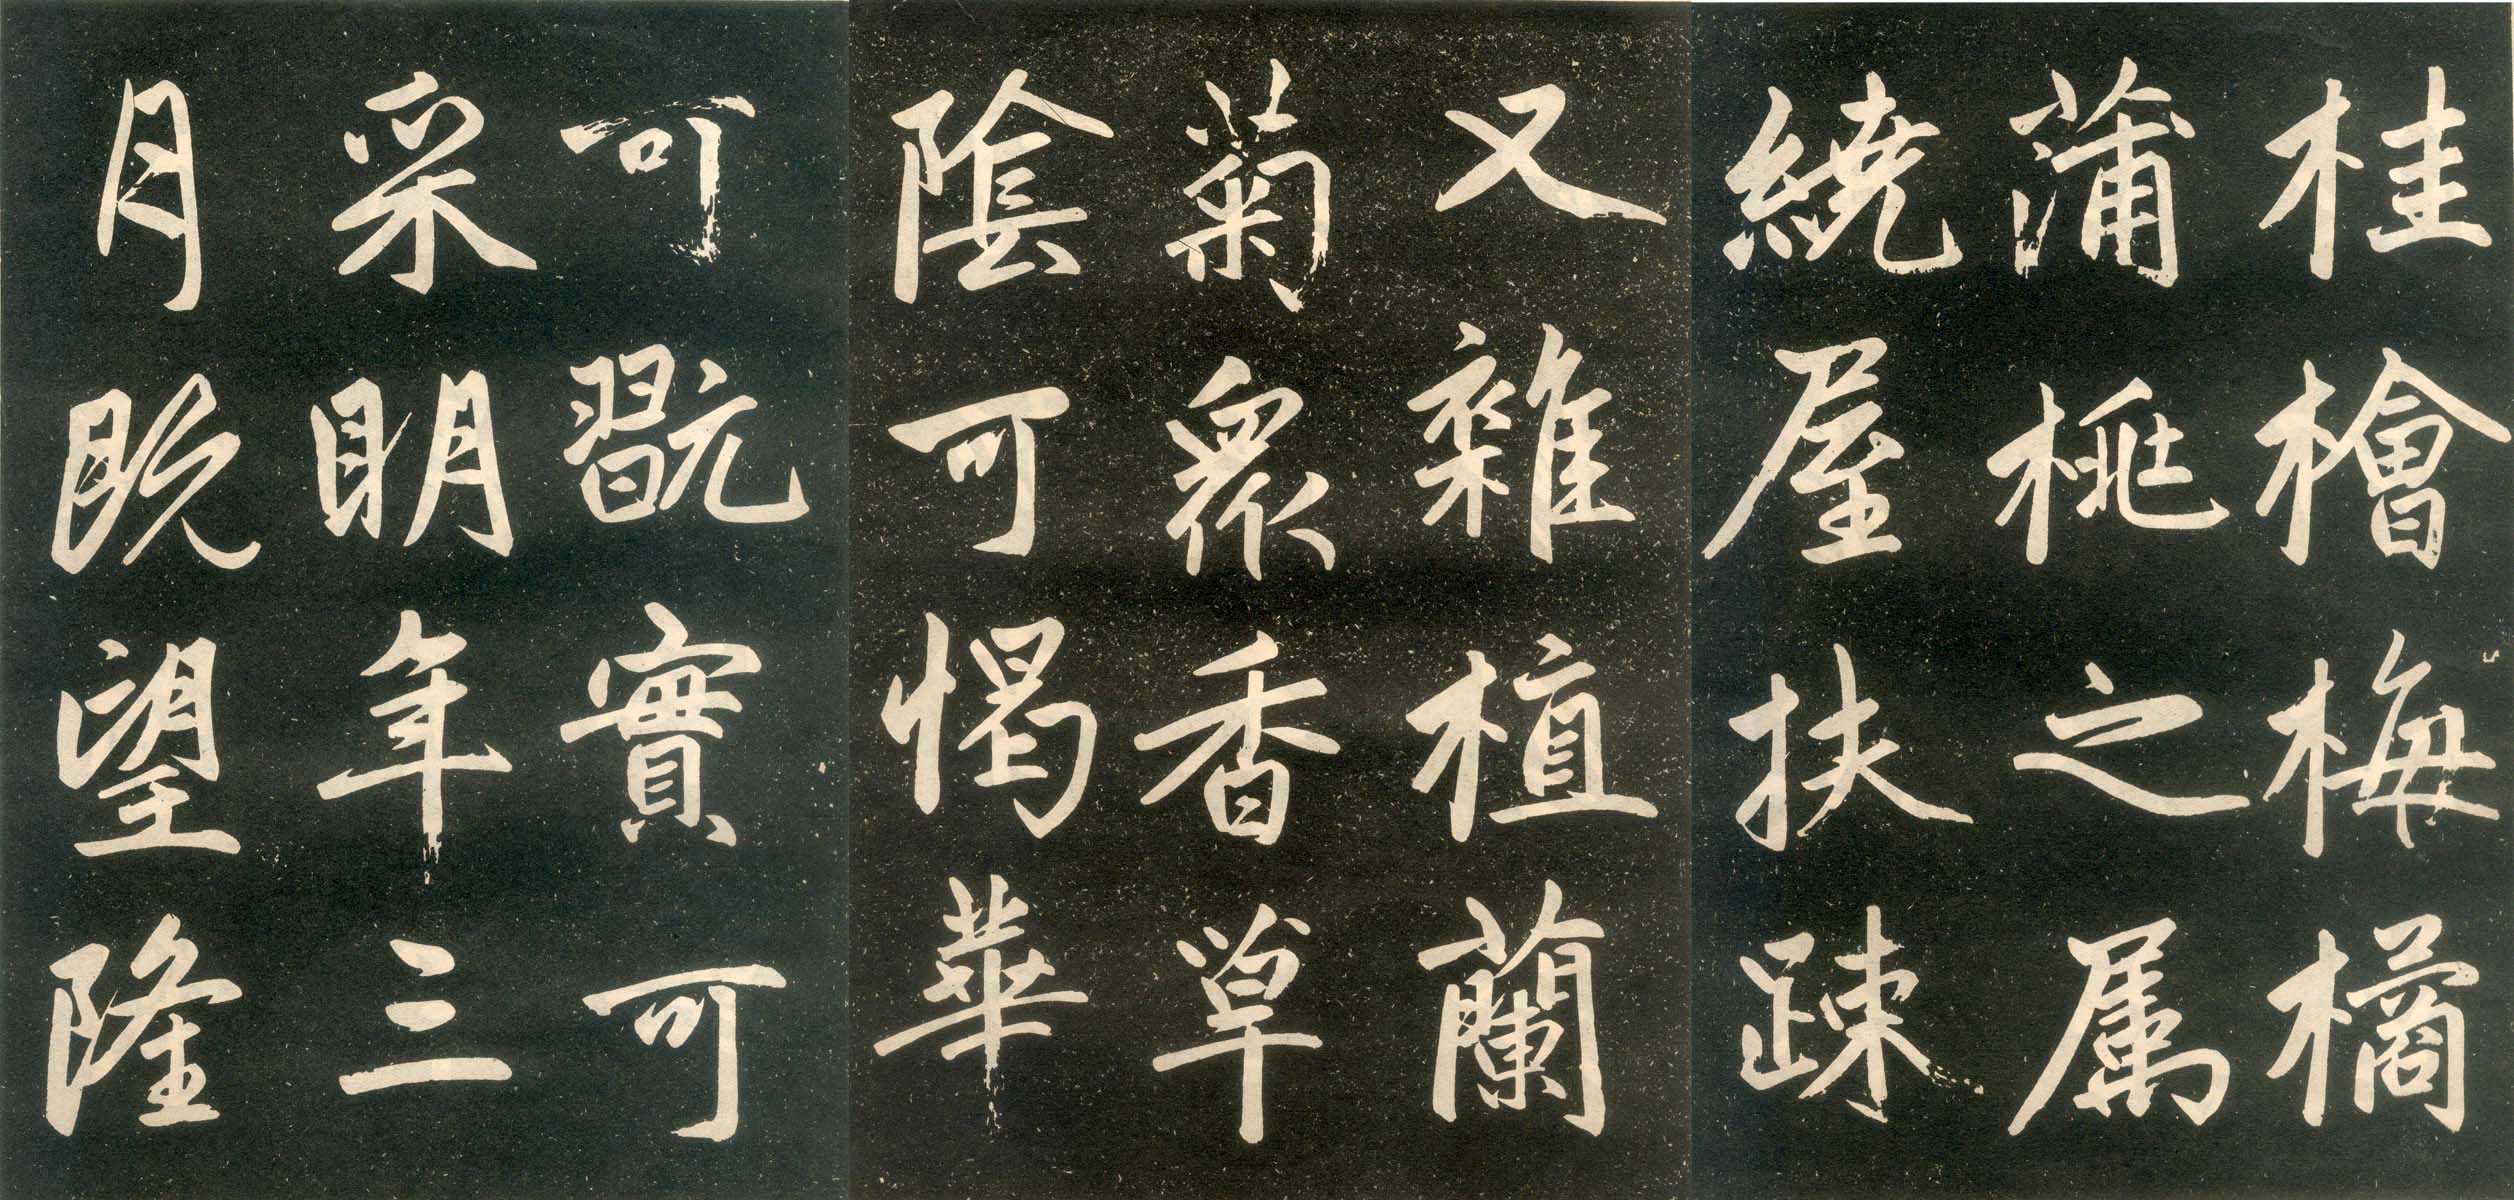 桂檜梅橘
蒲桃之属
繞屋扶踈
又雜植蘭
菊衆香草
陰可愒華
可翫實可
采明年三
月既望隆